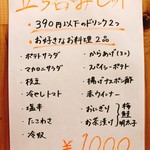 立ち呑みセット
・390円以下のドリンク2つ
・お好きなお料理2品
・ポテトサラダ
・マカロニサラダ
・枝豆
・冷やしトマト
・塩辛
・たこわさ
・冷奴
・からあげ(2コ)
・スパイシーポテト
・揚げナスポン酢
・赤ウインナー
・おにぎり
・お茶漬け
梅
鮭
明太子
¥1000